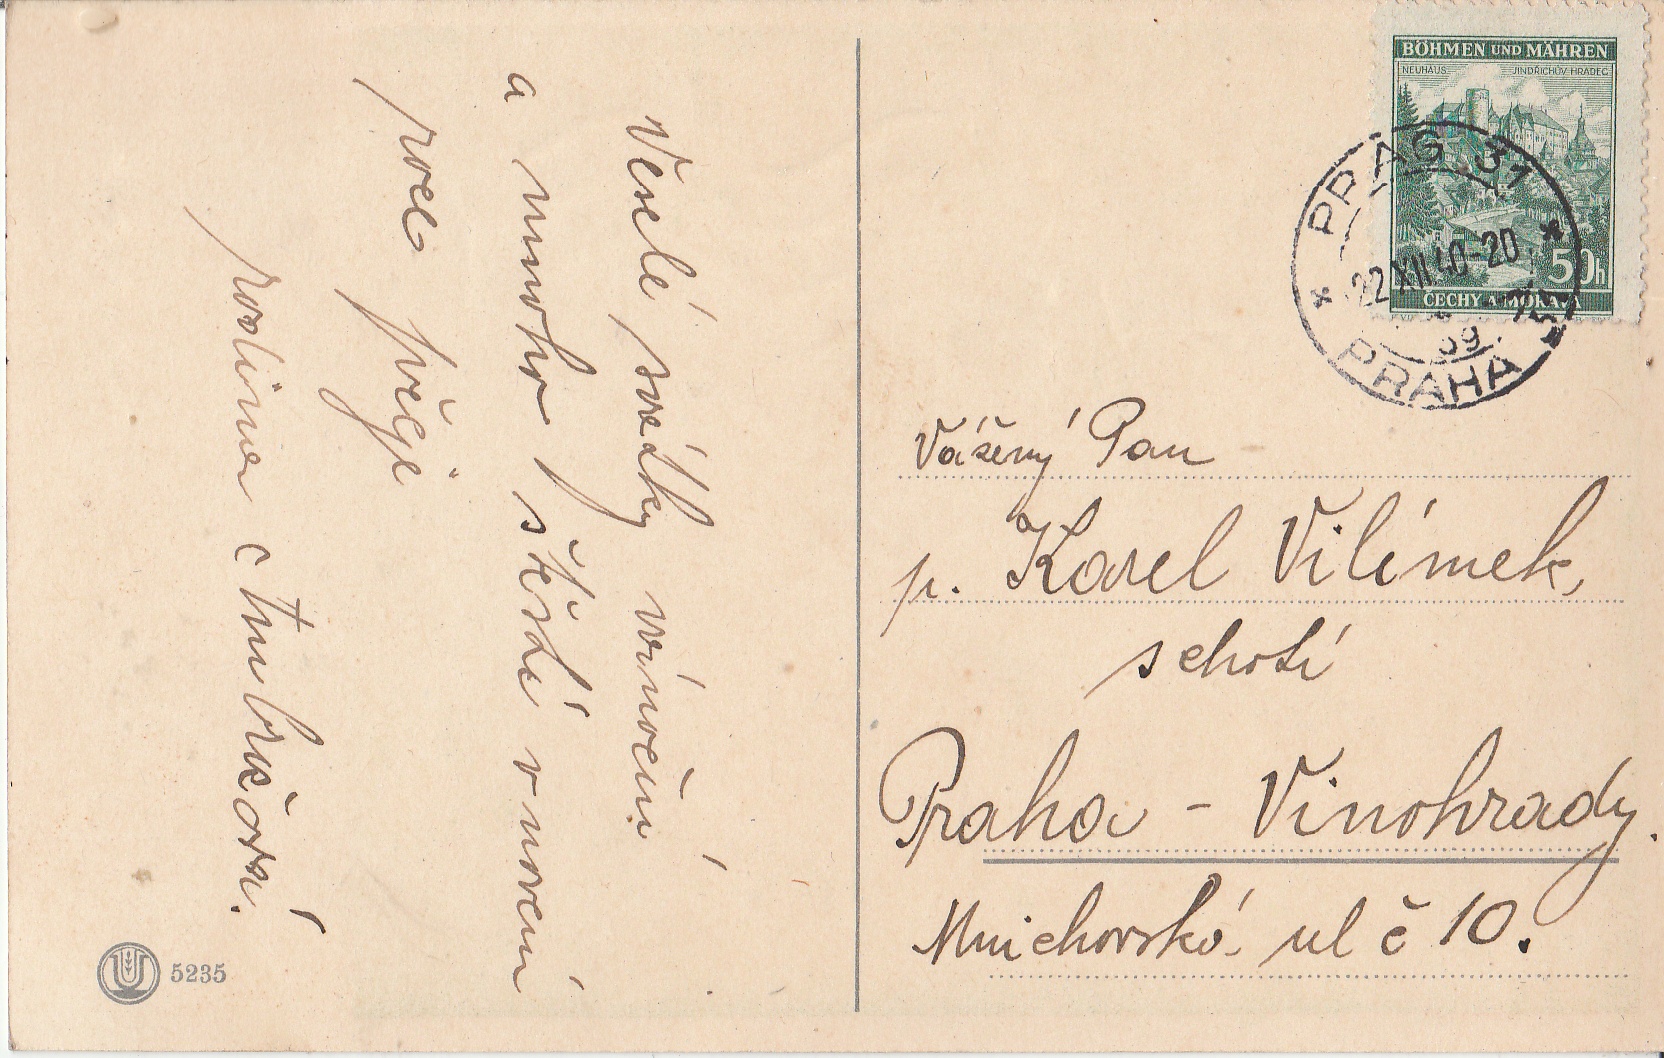 Veselé svátky vánoční
a mnoho štěstí v novém
roce přeje
rodina
BÖHMEN UND MÄHREN
NEUHAUS JINDŘICHŮV HRADEC
50h
ČECHY A MORAVA
PRAG 31
22.XII.40-20
PRAHA 31
Vážený Pan
p. Karel Vilímek,
s chotí
Praha - Vinohrady.
Mnichovská ul č 10.
5235